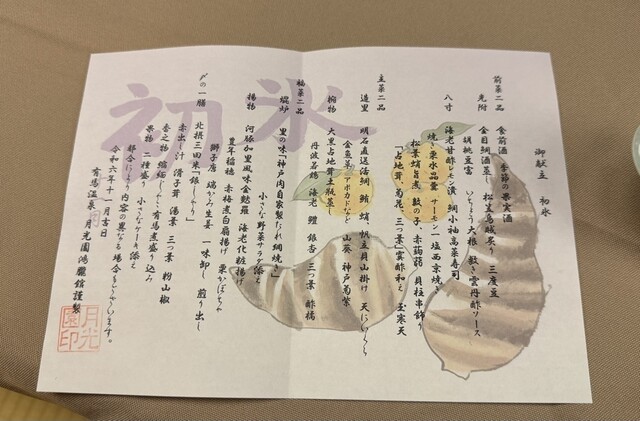 初氷
御献立　初氷
前菜二品
食前酒　季節の果実酒
先附　金目鯛酒蒸し　松丈烏賊炙り　三度豆
胡桃豆富　いちょう大根　敷き雲丹酢ソース
八寸　海老甘酢レモン漬　鯛小袖高菜寿司
焼き栗水晶羹　サーモン塩西京焼き
松葉蛸旨煮　鼓の子、赤蒟蒻　貝柱串飾り
「占地茸、菊花、三つ葉」霙酢和え　玉寒天
主菜二品
造里　明石直送活鯛　鮪　蛸　帆立貝山掛け　天にいくら
金魚草　アボカドなど　山葵　神戸菊紫
椀物　大黒占地茸土瓶蒸し
丹波若鶏　海老　鱧　銀杏　三つ葉　酢橘
福菜二品
焜炉　里の味「神戸肉自家製たれ網焼き」
小さな野菜サラダ添え
揚物　河豚加里風味金麩羅　海老化粧揚げ
豊年稲穂　赤梅煮白扇揚げ　栗かぼちゃ
獅子唐　端かみ生姜　一味卸し　煎り出し
〆の一膳　北摂三田米「銀しゃり」
赤出し汁　滑子茸　湯葉　三つ葉　粉山椒
香之物　縮緬じゃこ有馬煮盛り込み
果物　二種盛り　小さなケーキ添え
都合により内容の異なる場合もございます。
令和六年十一月吉日
有馬温泉　月光園鴻朧館謹製
月光園印